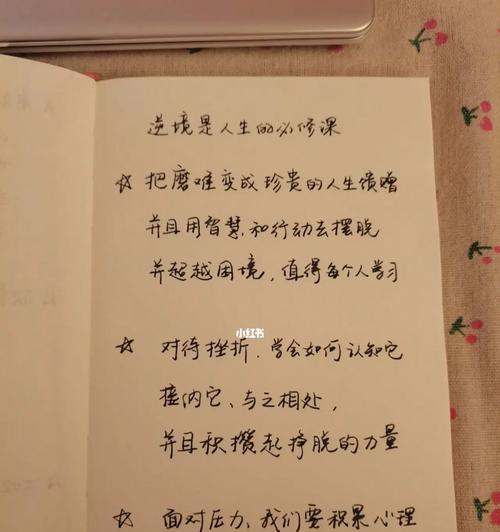 逆境是人生的必修课
☆ 把磨难变成珍贵的人生馈赠
并且用智慧和行动去摆脱
并超越困境，值得每个人学习
小红书
☆ 对待挫折，学会如何认知它
接纳它、与之相处，
并且积攒起挣脱的力量
☆ 面对压力，我们要积累心理